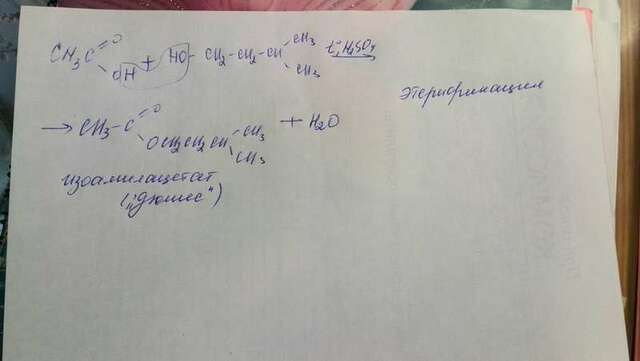 CH₃C(=O)OH + HO-CH₂-CH₂-CH(CH₃)CH₃ t°, H₂SO₄ →
этерификация
→ CH₃-C(=O)OCH₂CH₂CH(CH₃)CH₃ + H₂O
изоамилацетат
("Дюшес")